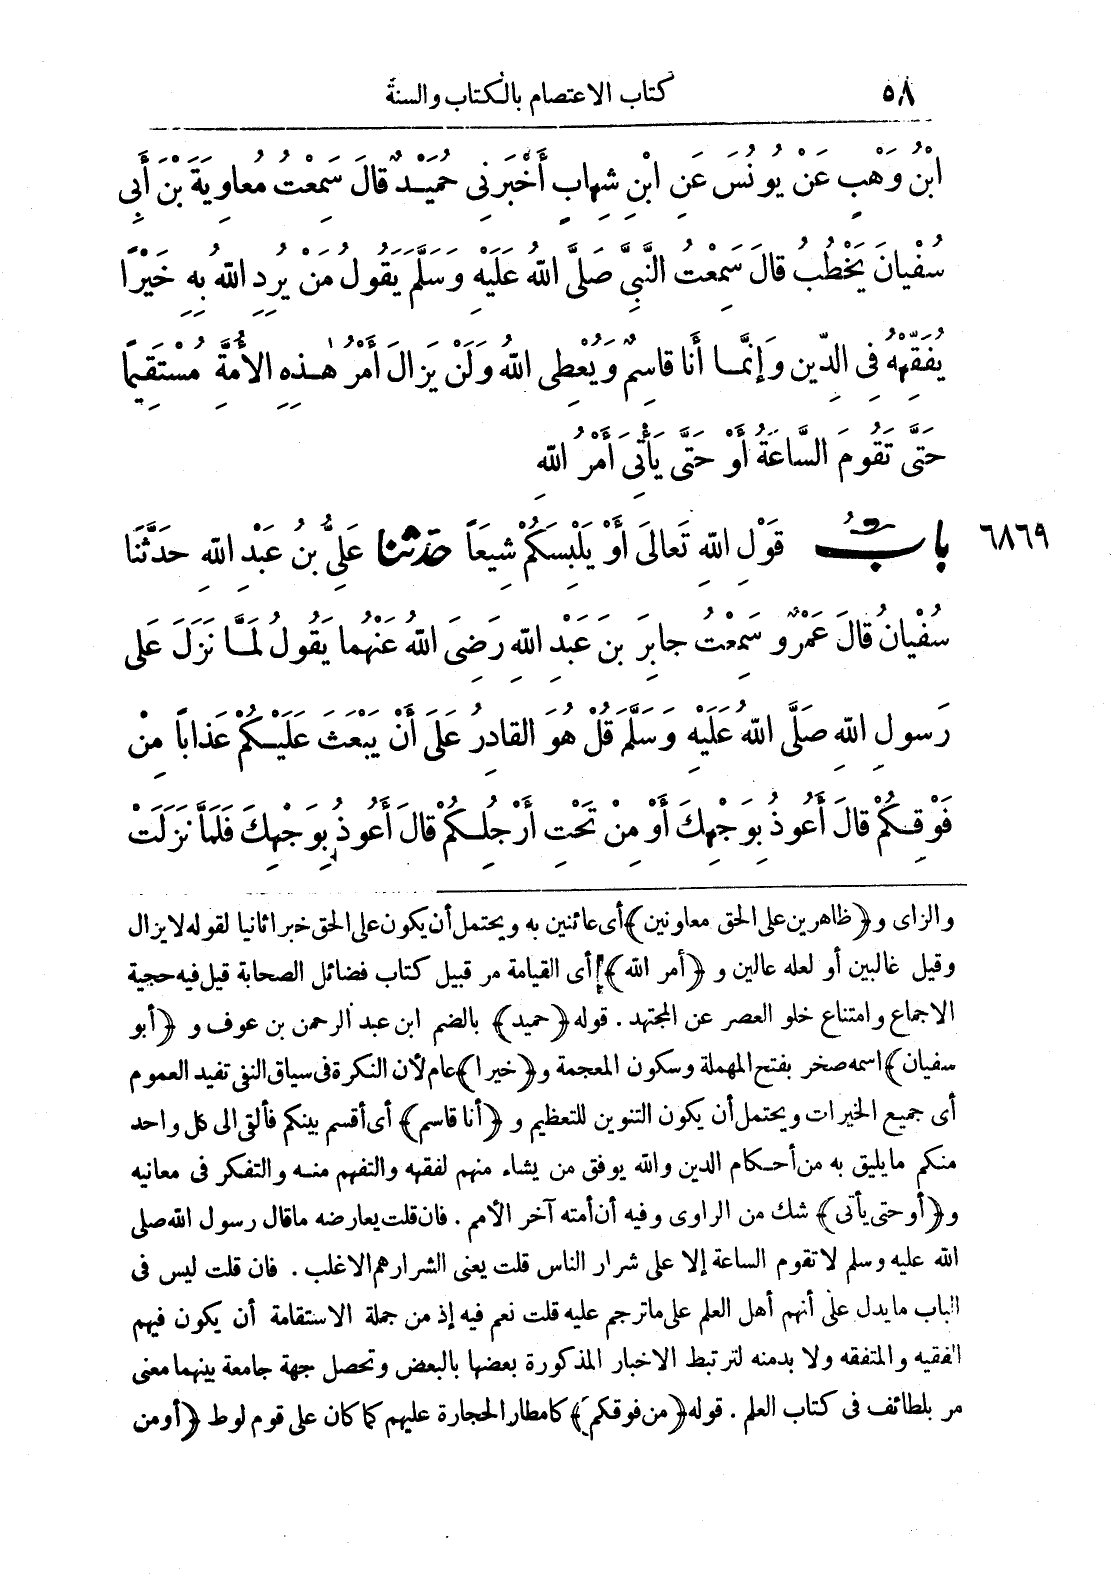 ٥٨ كتاب الاعتصام بالكتاب والسنة
ابْنُ وَهْبٍ عَنْ يُونُسَ عَنِ ابْنِ شِهابٍ أَخْبَرَنِى حُمَيْدٌ قالَ سَمِعْتُ مُعاوِيَةَ بْنَ أَبِى
سُفْيانَ يَخْطُبُ قالَ سَمِعْتُ النَّبِىَّ صَلَّى اللهُ عَلَيْهِ وَسَلَّمَ يَقُولُ مَنْ يُرِدِ اللهُ بِهِ خَيْرًا
يُفَقِّهْهُ فِى الدِّينِ وَإِنَّمــا أَنا قاسِمٌ وَيُعْطِى اللهُ وَلَنْ يَزالَ أَمْرُ هٰــذِهِ الأُمَّةِ مُسْتَقِيمًا
حَتَّى تَقُومَ السَّاعَةُ أَوْ حَتَّى يَأْتِىَ أَمْرُ اللهِ
٦٨٦٩ بابُ قَوْلِ اللهِ تَعالَى أَوْ يَلْبِسَكُمْ شِيَعاً حَدَّثَنا عَلِىُّ بنُ عَبْدِ اللهِ حَدَّثَنَا
سُفْيانُ قالَ عَمْرٌو سَمِعْتُ جابِرَ بنَ عَبْدِ اللهِ رَضِىَ اللهُ عَنْهُما يَقُولُ لَمَّــا نَزَلَ عَلى
رَسولِ اللهِ صَلَّى اللهُ عَلَيْهِ وَسَلَّمَ قُلْ هُوَ القادِرُ عَلَى أَنْ يَبْعَثَ عَلَيْــكُمْ عَذاباً مِنْ
فَوْقِــكُمْ قالَ أَعُوذُ بِوَجْهِكَ أَوْ مِنْ تَحْتِ أَرْجُلِــكُمْ قالَ أَعُوذُ بِوَجْهِكَ فَلَمَّا نَزَلَتْ
والزاى و﴿ظاهرين على الحق معاونين﴾ أى عائنين به ويحتمل أن يكون على الحق خبرا ثانيا لقوله لا يزال
وقيل غالبين أو لعله عالين و ﴿أمر الله﴾ أى القيامة مر قبيل كتاب فضائل الصحابة قيل فيه حجية
الاجماع وامتناع خلو العصر عن المجتهد . قوله ﴿حميد﴾ بالضم ابن عبد الرحمن بن عوف و ﴿أبو
سفيان﴾ اسمه صخر بفتح المهملة وسكون المعجمة و﴿خيرا﴾ عام لأن النكرة فى سياق النفى تفيد العموم
أى جميع الخيرات ويحتمل أن يكون التنوين للتعظيم و ﴿أنا قاسم﴾ أى أقسم بينكم فألقى الى كل واحد
منكم ما يليق به من أحــكام الدين والله يوفق من يشاء منهم لفقهه والتفهم منــه والتفكر فى معانيه
و﴿أو حتى يأتى﴾ شك من الراوى وفيه أن أمته آخر الأمم . فان قلت يعارضه ما قال رسول الله صلى
الله عليه وسلم لا تقوم الساعة إلا على شرار الناس قلت يعنى الشرار هم الاغلب . فان قلت ليس فى
الباب ما يدل على أنهم أهل العلم على ما ترجم عليه قلت نعم فيه إذ من جملة الاستقامة أن يكون فيهم
الفقيه والمتفقه ولا بد منه لترتبط الاخبار المذكورة بعضها بالبعض وتحصل جهة جامعة بينهما معنى
مر بلطائف فى كتاب العلم . قوله ﴿من فوقكم﴾ كامطار الحجارة عليهم كما كان على قوم لوط ﴿أو من